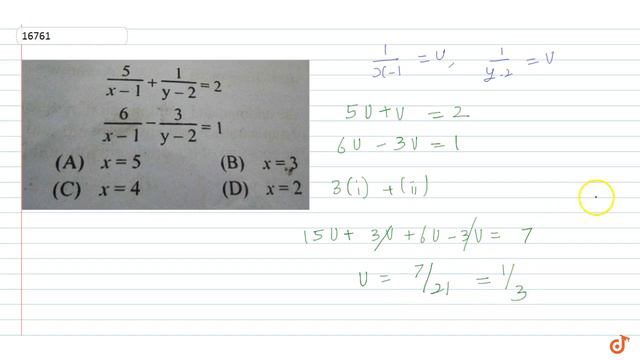 16761
5/(x – 1) + 1/(y – 2) = 2
6/(x – 1) – 3/(y – 2) = 1
(A) x = 5 (B) x = 3
(C) x = 4 (D) x = 2
1/(x-1) = U, 1/(y-2) = V
5U + V = 2
6U - 3V = 1
3(i) + (ii)
15U + 3V + 6U - 3V = 7
U = 7/21 = 1/3